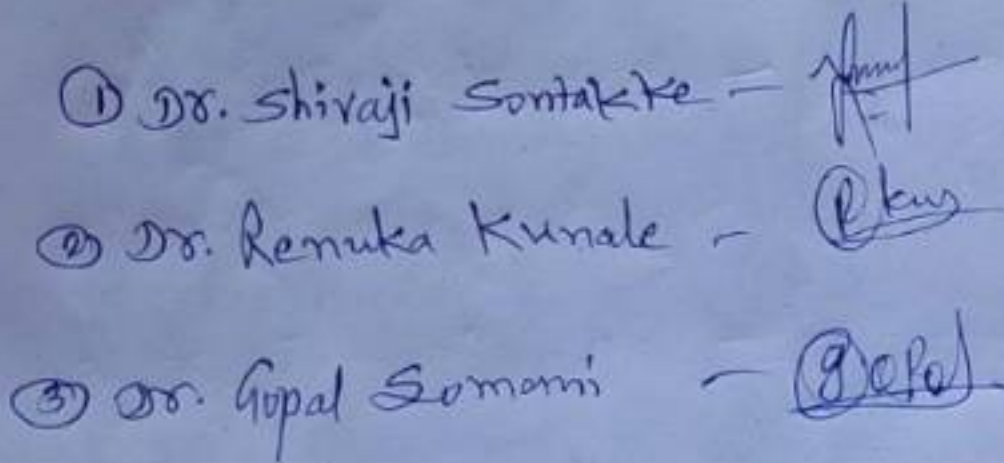 ① Dr. Shivaji Sontakke -
② Dr. Renuka Kunale - Rkun
③ Dr. Gopal Somani - gopal